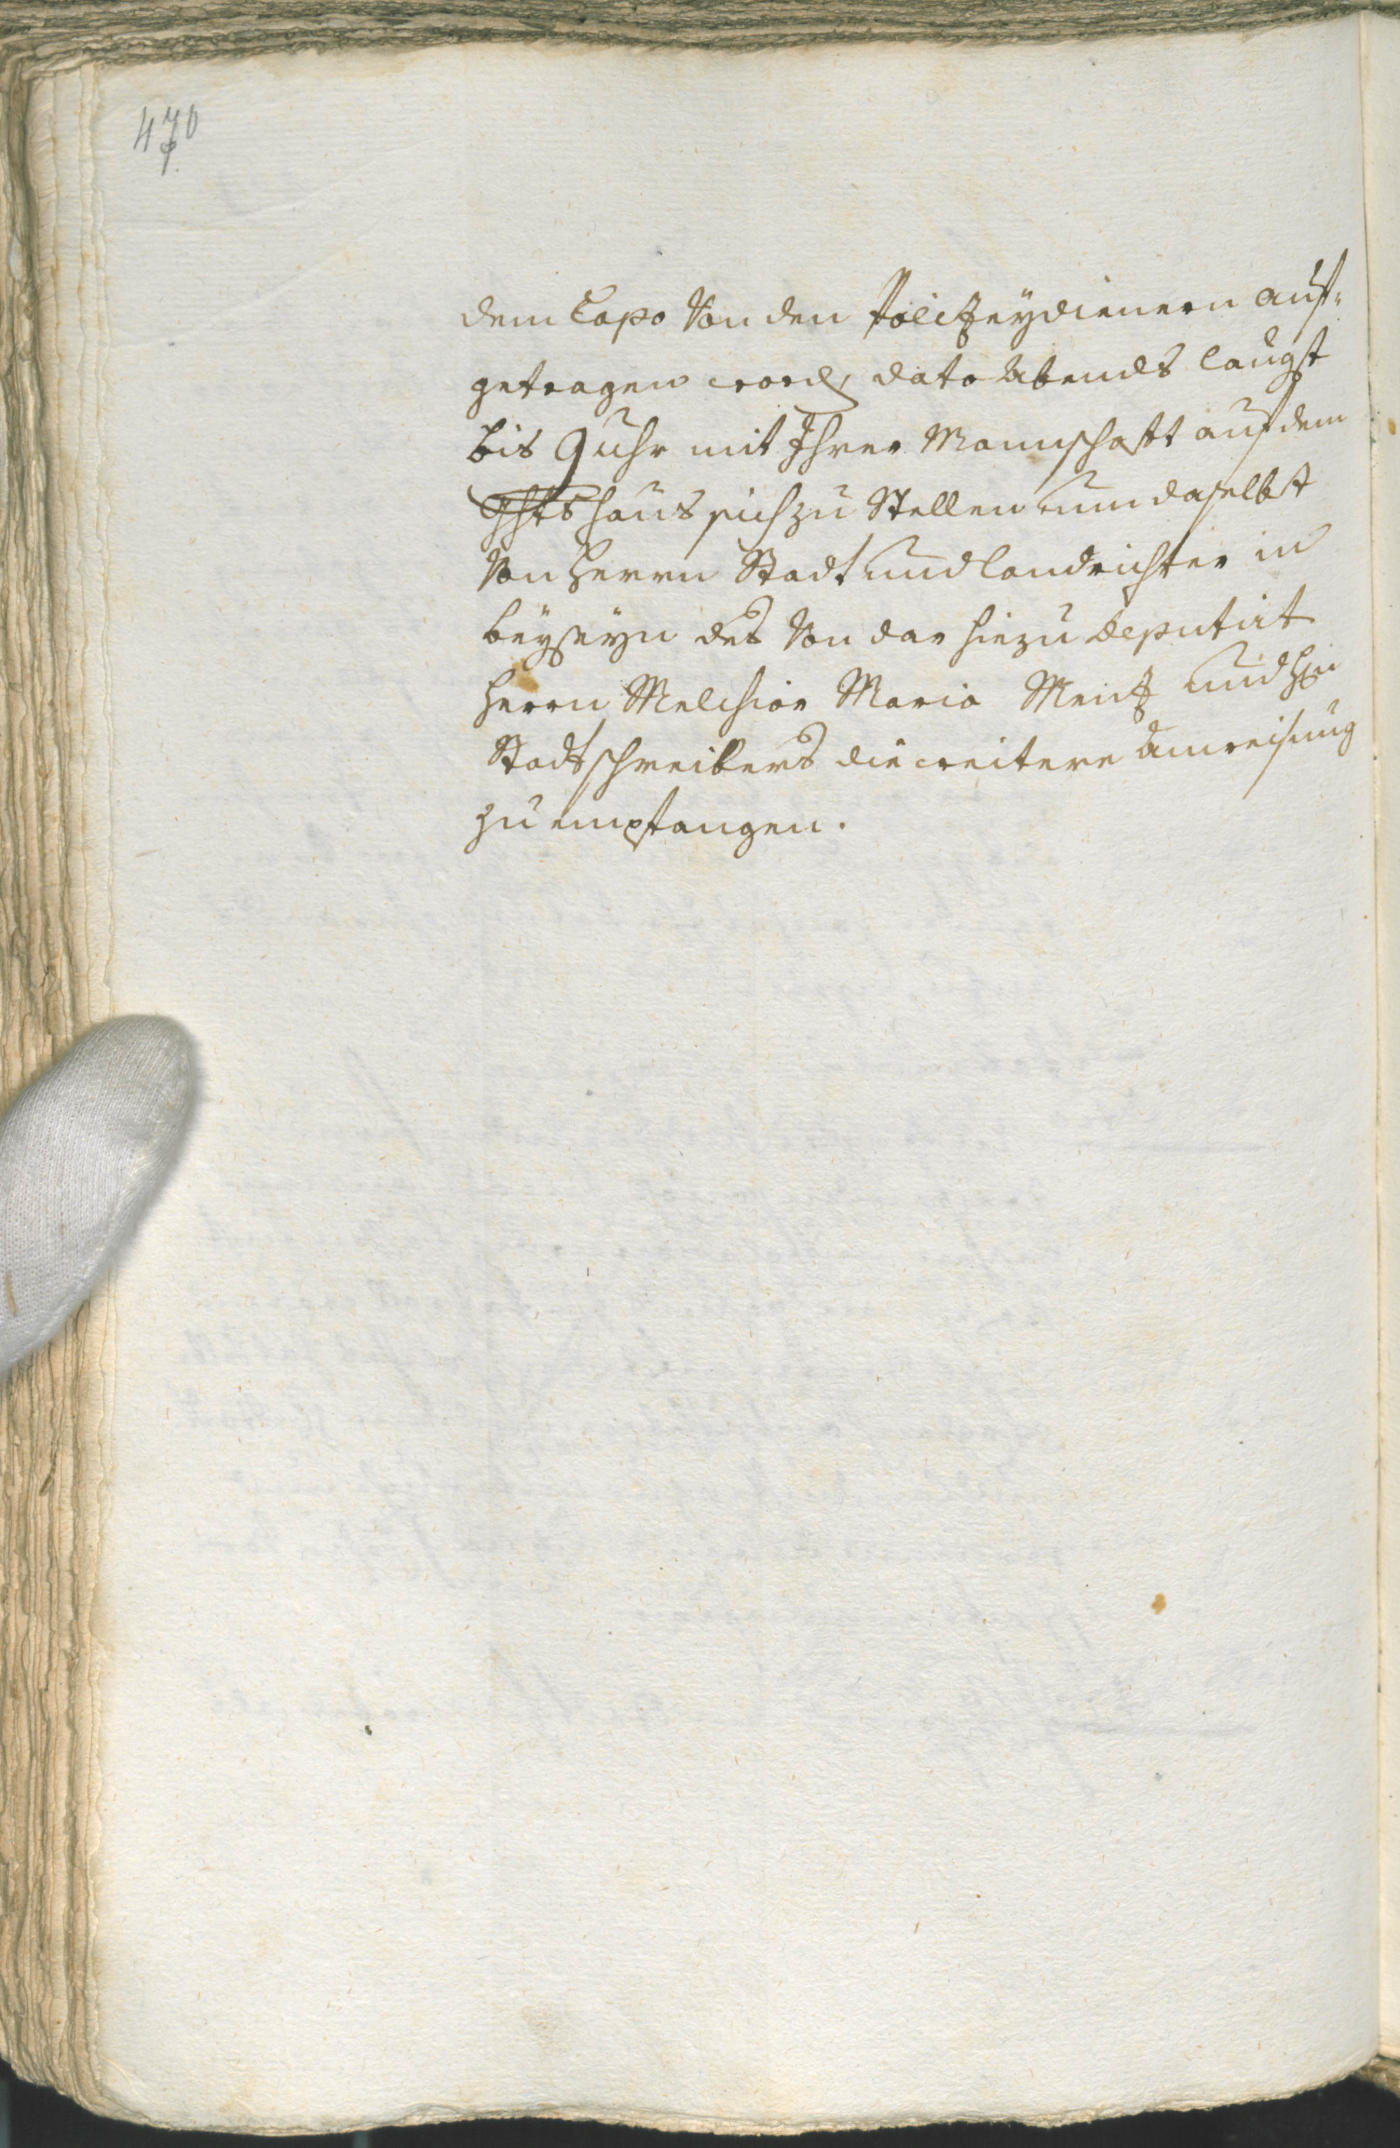 470
dem Capo Von den Policzeydienern auf-
getragen word, dato Abends längst
bis 9 uhr mit Ihrer Mannschafft auf dem
haus sich zu Stellen um daselbst
Von Herrn Stadt und Landrichter in
beÿseÿn des Von dar hiezu Deputirt
Herrn Melchior Maria Mentz und Hrn
Stadtschreibers die weitere Anweisung
zu empfangen.